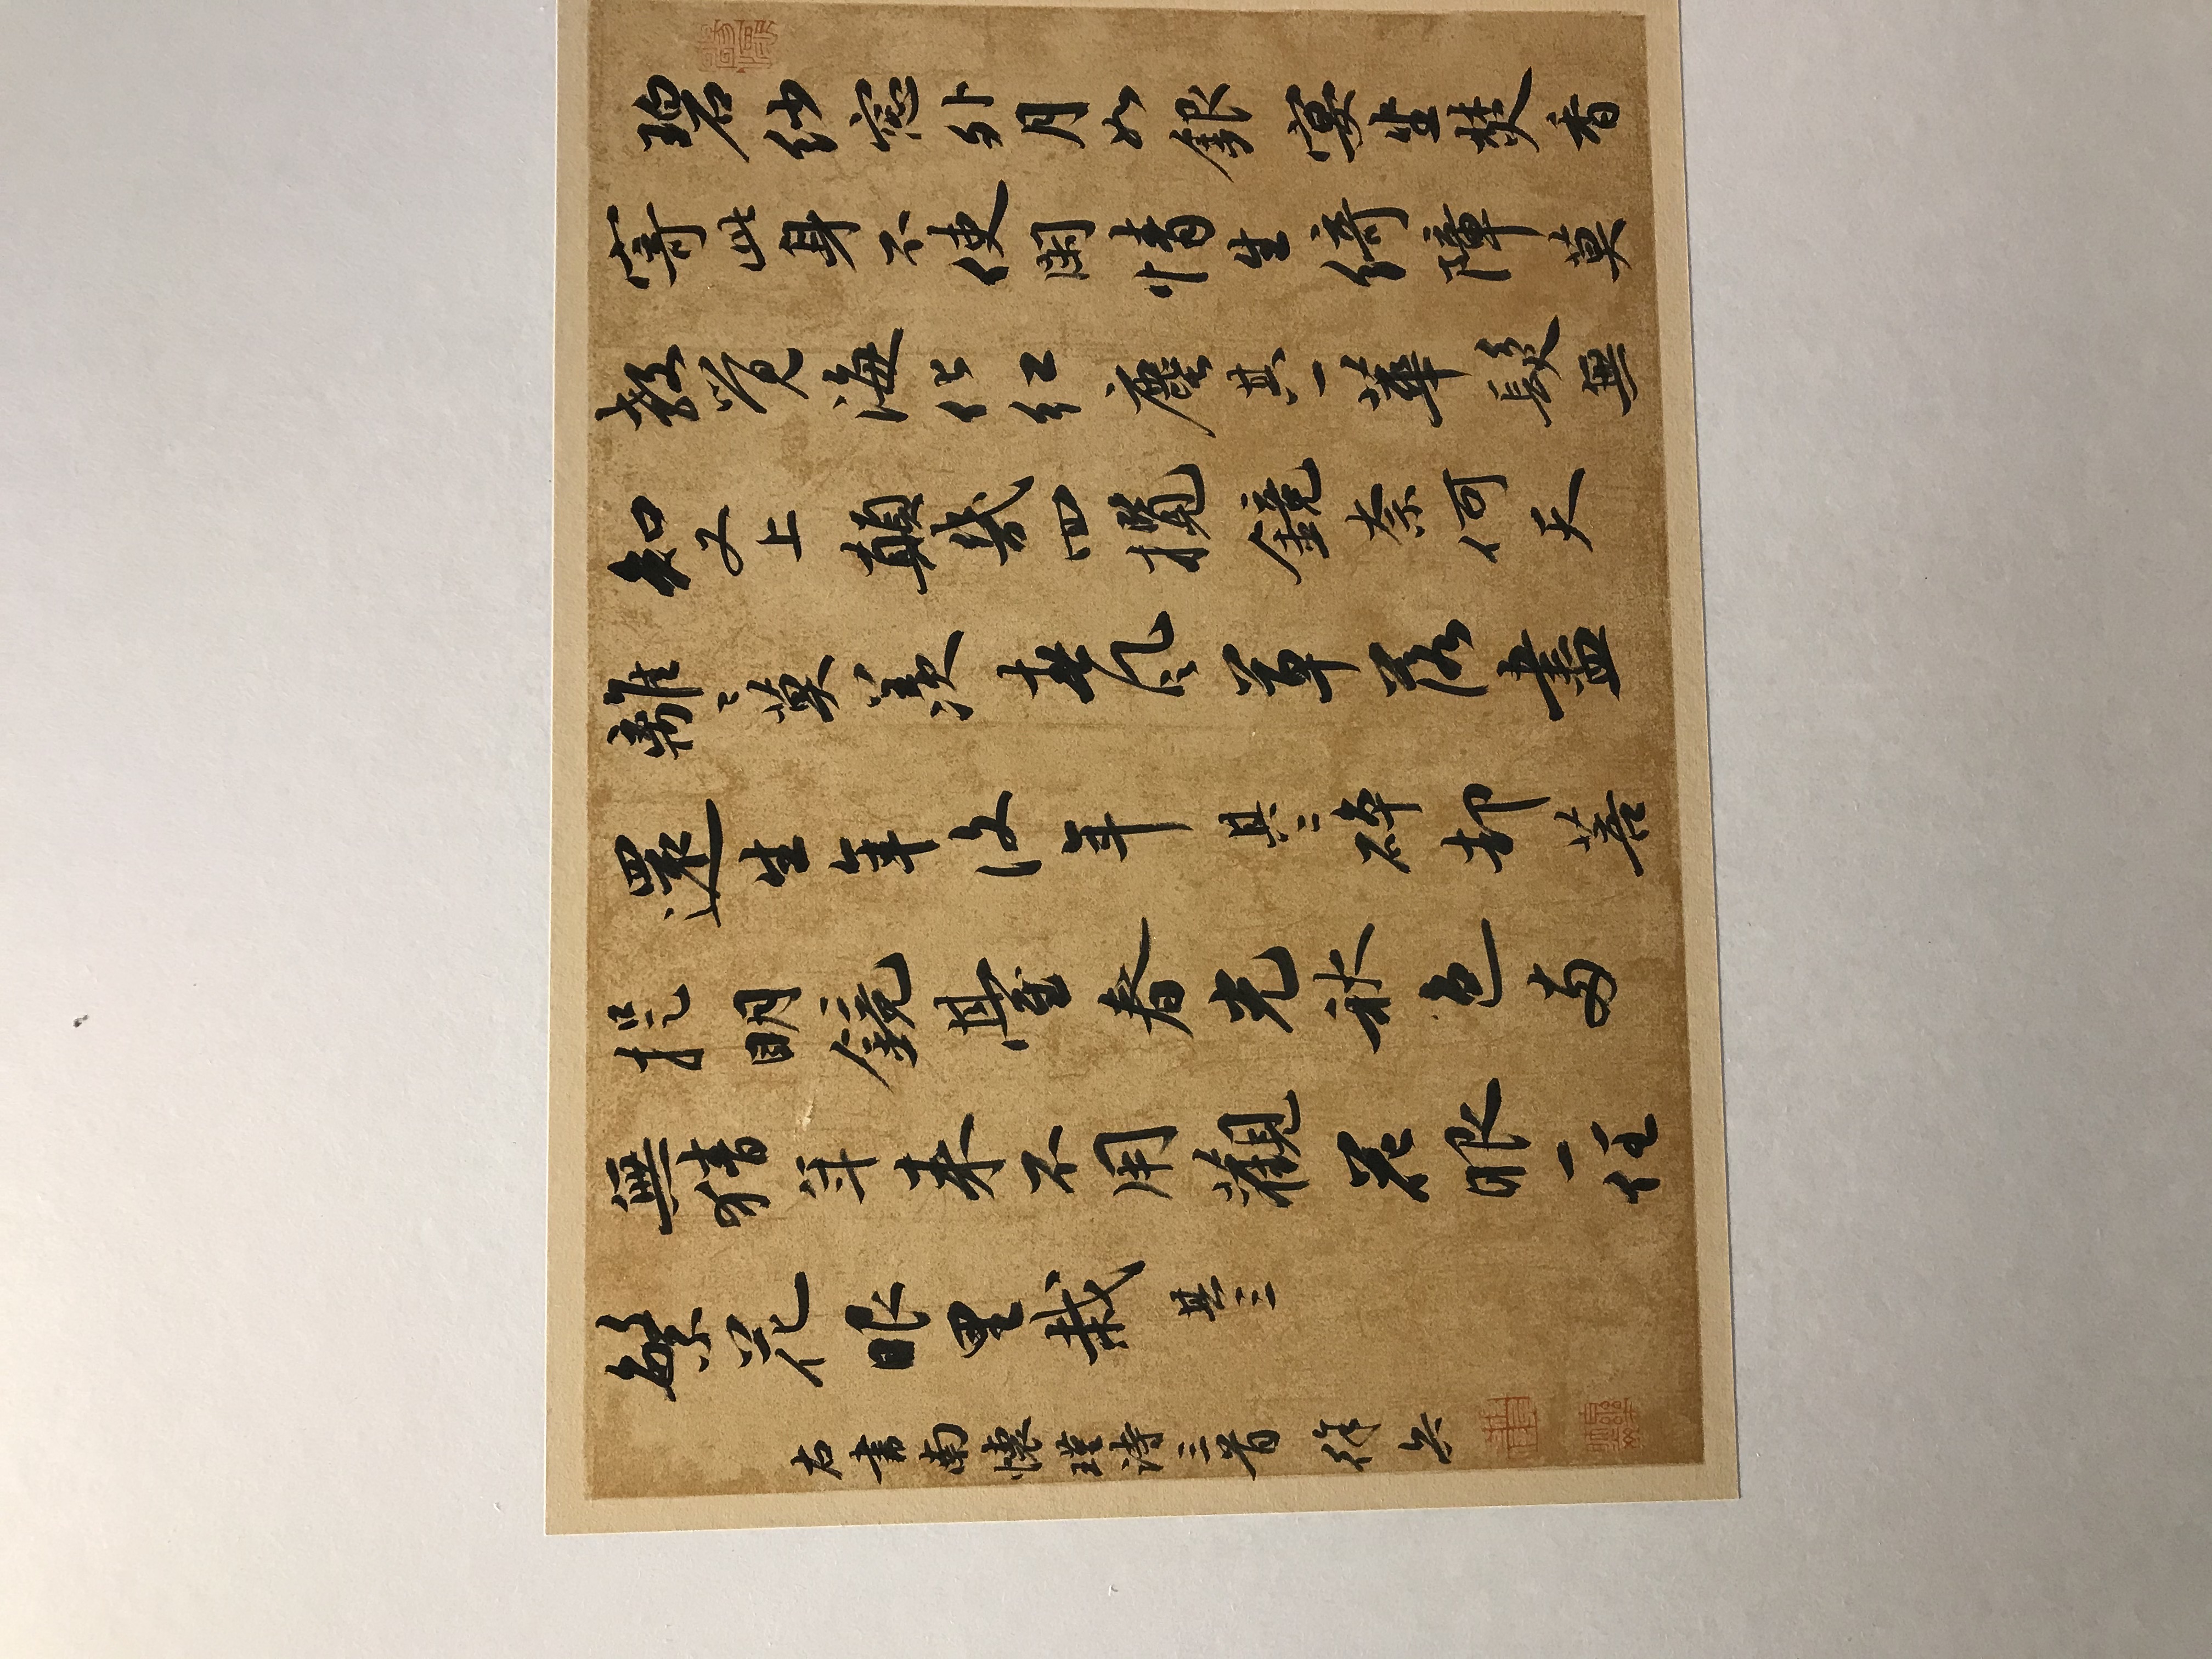 碧紗窓外月如銀宴坐焚香
寄此身不使閑情生綺障莫
教覚海化红塵其一華髮無
知又上顛幾回攬鏡奈何天
離々莫羨春风々草落盡
還生年復年其二碎却菩
提明鏡臺春光秋色两
無猜年来不用觀花眼一任
繁花眼里栽其三
右書南懷瑾詩三首徐兵